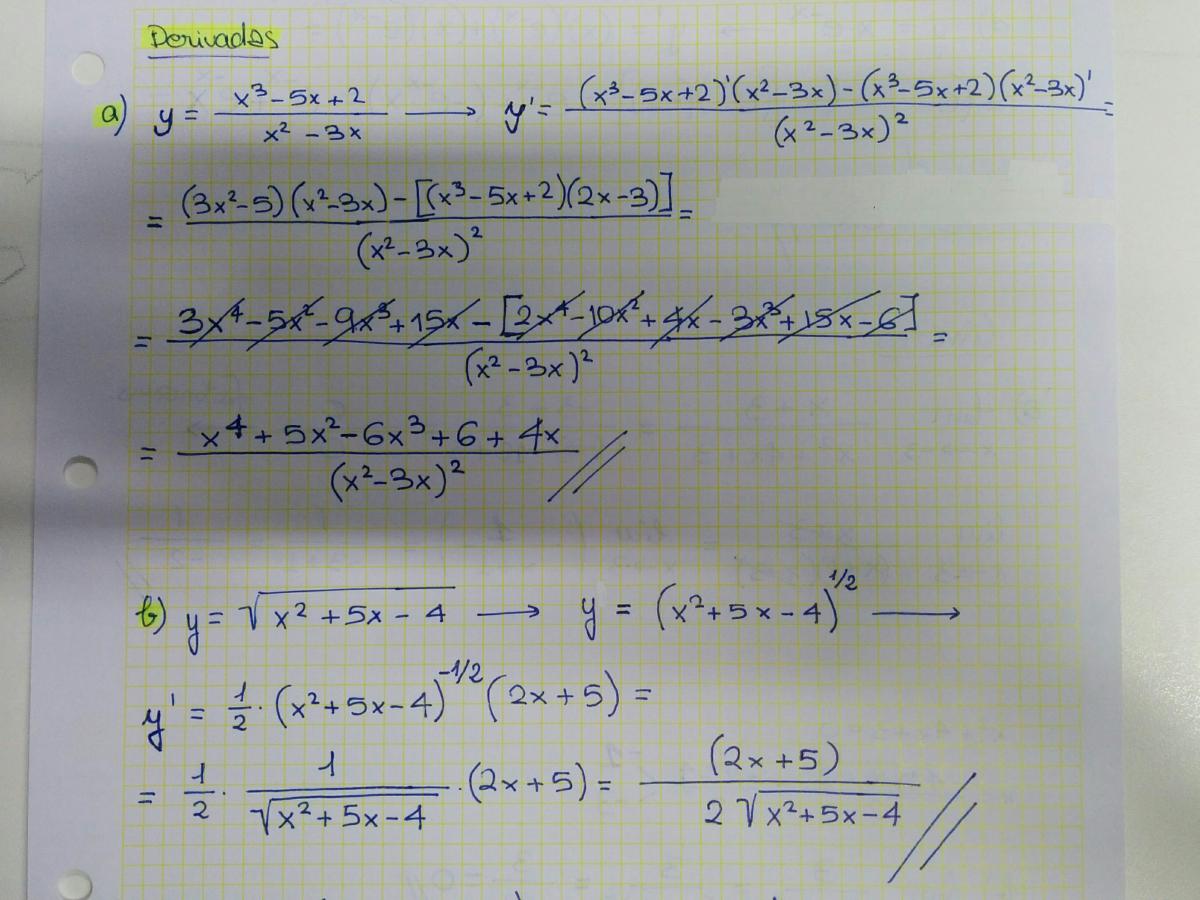 Derivadas
a) y = (x³ - 5x + 2)/(x² - 3x) → y' = ((x³ - 5x + 2)'(x² - 3x) - (x³ - 5x + 2)(x² - 3x)')/(x² - 3x)² =
= ((3x² - 5)(x² - 3x) - [(x³ - 5x + 2)(2x - 3)])/(x² - 3x)² =
= (3x⁴ - 5x² - 9x³ + 15x - [2x⁴ - 10x² + 4x - 3x³ + 15x - 6])/(x² - 3x)² =
= (x⁴ + 5x² - 6x³ + 6 + 4x)/(x² - 3x)² //
b) y = √(x² + 5x - 4) → y = (x² + 5x - 4)^1/2 →
y' = 1/2 · (x² + 5x - 4)^-1/2 (2x + 5) =
= 1/2 · 1/√(x² + 5x - 4) · (2x + 5) = (2x + 5)/(2√(x² + 5x - 4)) //